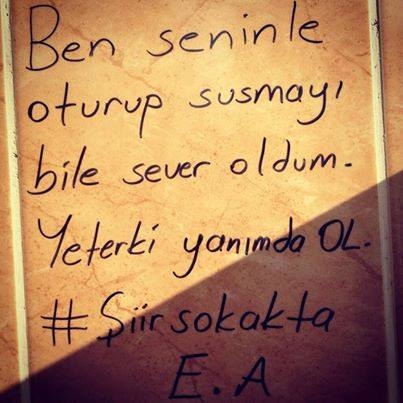 Ben seninle
oturup susmayı
bile sever oldum.
Yeterki yanımda OL.
#Şiirsokakta
E.A